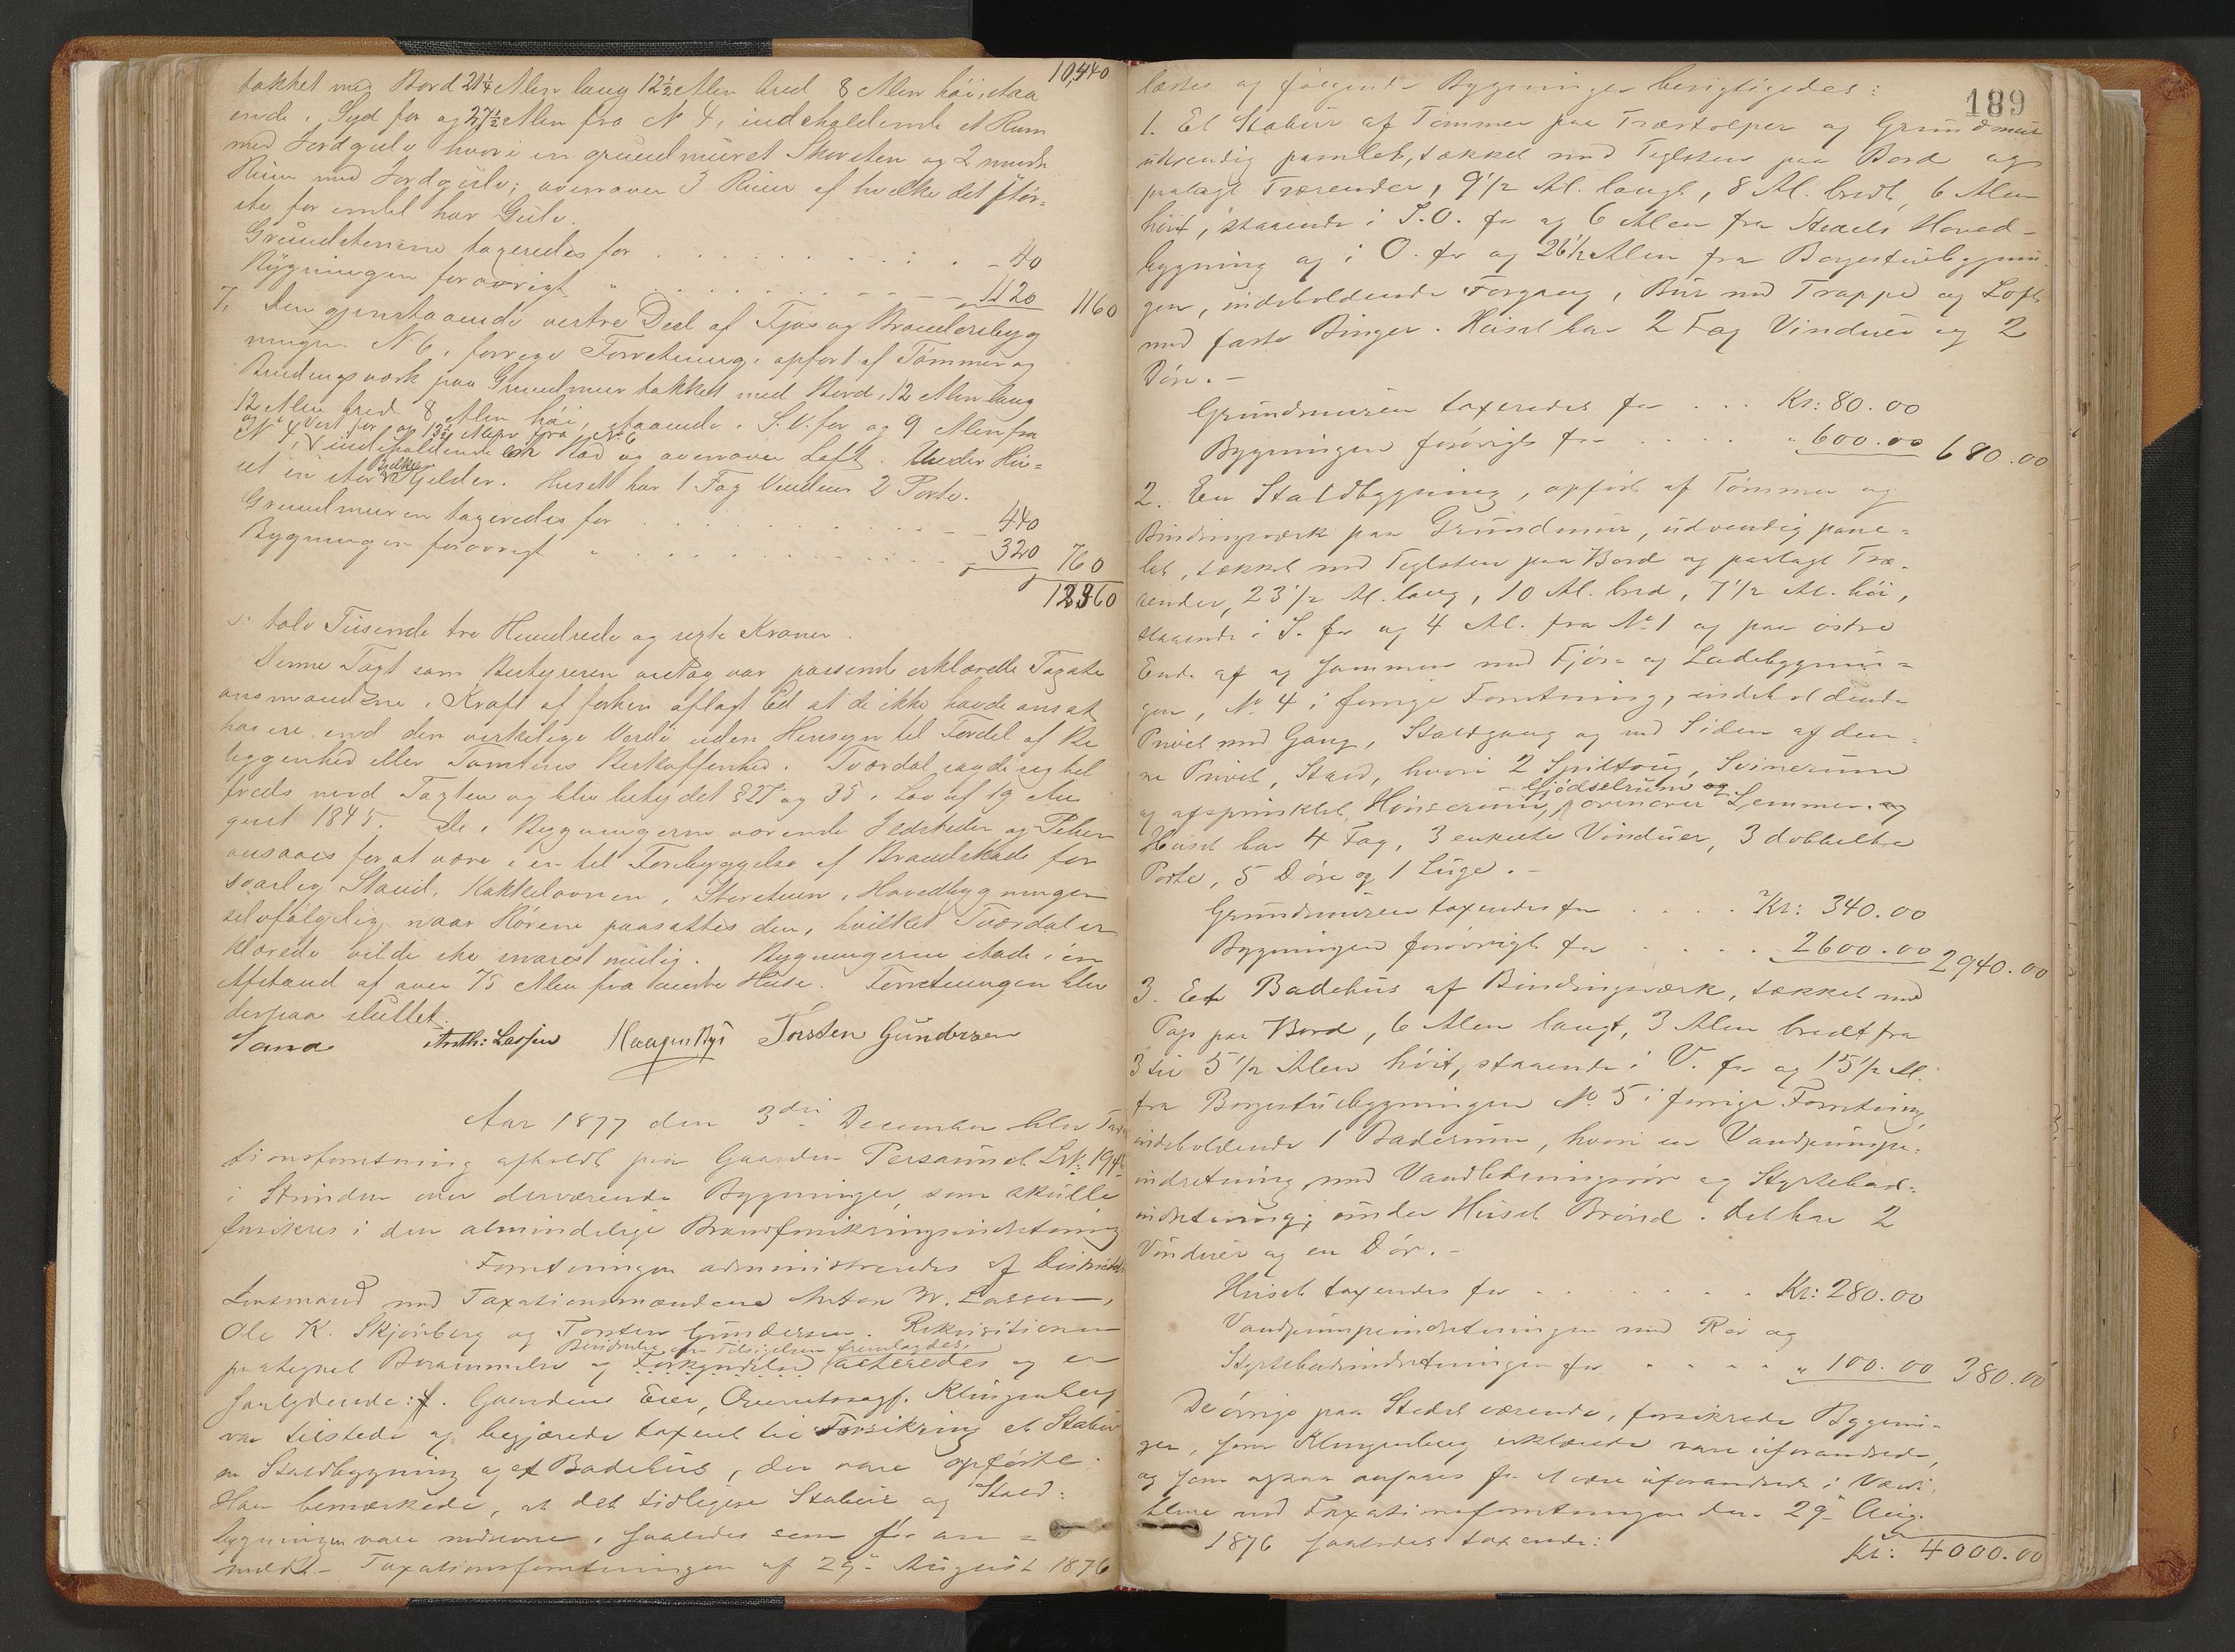 10,440
takket med Bord 21¼ Alen lang 12½ Alen bred 8 Alen høi, staa
ende i Syd for og 27½ Alen fra N 4, indeholdende et Rum
med Jordgulv hvori en grundmuret Skorsten og 2 mindre
Rum med Jordgulv; ovenover 3 Rum af hvilke det stør=
ste for endel har Gulv.
Grundstenene taxeredes for . . . . . . . . - 40
Bygningen forøvrigt " . . . . . . - 1120 1160
7, Den gjenstaaende vestre Deel af Fjøs og Brændesbyg
ningen N 6, forrige Forretning, opført af Tømmer og
Bindingsværk paa Grundmur takket med Bord, 12 Alen lang
12 Alen bred 8 Alen høi, staaende i S.V. for og 9 Alen fra
og i Vest for og 13½ Alen fra N 6
N 4, indeholdende en Lad og ovenover Loft. Under Hu=
set en stor Kjelder. Huset har 1 Fag Vinduer 2 Porte.
Grundmuren taxeredes for . . . . . . . . - 440
Bygningen forøvrigt " . . . . . . - 320 760
12360
ɔ: tolv Tusende tre Hundrede og sexti Kroner.
Denne Taxt som Bestyreren antog var passende erklærede Taxsta
onsmændene i Kraft af forhen aflagt Ed at de ikke havde ansat
høiere end den virkelige Værdi uden Hensyn til Fordel af Be
liggenhed eller Tomtens Beskaffenhed. Tværdal sagde sig til
freds med Taxten og blev betydet § 27 og 35 i Lov af 19 Au
gust 1845. De i Bygningerne værende Ildsteder og Piber
ansaaes for at være i en til Forebyggelse af Brandskade for
svarlig Stand, Kakkelovnen i Storstuen i Hovedbygningen
selvfølgelig naar Rørene paasattes den, hvilket Tværdal er
klærede vilde ske snarest mulig. Bygningerne stode i en
Afstand af over 75 Alen fra andre Huse. Forretningen blev
derpaa sluttet.
Anth: Lassen Torsten Gundersen
Aar 1877 den 3die December blev Taxa
tionsforretning afholdt paa Gaarden Persaunet Lsk: 194b
i Strinden over derværende Bygninger, som skulle
forsikres i den almindelige Brandforsikringsindretning
Forretningen administreredes af Districtets
Lensmand med Taxationsmændene Anton M. Lassen,
Ole K. Skjønberg og Torsten Gundersen. Rekvisitionen
Bevidnelse om Tilsigelsen fremlagdes,
paategnet Berammelse og Forkyndelse acteredes og er
saalydende: . Gaardens Eier, Overretssagf. Klingenberg
var tilstede og begjærede taxeret til Forsikring et Stabur
en Staldbygning og et Badehus, der vare opførte.
Han bemærkede, at det tidligere Stabur og Stald=
bygningen vare nedrevne, saaledes som før an =
meldt - Taxationsforretningen af 29de August 1876
189
læstes og følgende Bygninger besigtigedes:
1. Et Stabur af Tømmer paa Træstolper og Grundmur
udvendig panelet, tækket med Teglsten paa Bord og
paalagt Trærender, 9 1/2 Al. langt, 8 Al. bredt, 6 Alen
høit, staaende i S.O. for og 6 Alen fra Stedets Hoved-
bygning og i O. for og 26½ Alen fra Borgestuebygnin
gen, indeholdende Forgang, Bur med Trappe og Loft
med faste Binger. Huset har 2 Fag Vinduer og 2
Døre. -
Grundmuren taxeredes for . . . Kr: 80.00
Bygningen forøvrigt for . . . . " 600.00 680.00
2. En Staldbygning, opført af Tømmer og
Bindingsværk paa Grundmur, udvendig pane=
let, tækket med Teglsten paa Bord og paalagt Træ-
render, 23 1/2 Al. lang, 10 Al. bred, 7 1/2 Al. høi,
staaende i S. for og 4 Al. fra No 1 og paa østre
Ende af og sammen med Fjøs- og Ladebygnin=
gen, No 4 i forrige Forretning, indeholdende
Privet med Gang, Staldgang og ved Siden af den=
ne Privet, Stald, hvori 2 Spiltoug, Svinerum
Gjødselrum og
og afsprinklet Hønserum, ovenover Lemmer. og
Huset har 4 Fag, 3 enkelte Vinduer, 3 dobbelte
Porte, 5 Døre og 1 Luge. -
Grundmuren taxeredes for . . . . Kr: 340.00
Bygningen forøvrigt for . . . . . 2600.00 2940.00
3. Et Badehus af Bindingsværk, tækket med
Pap paa Bord, 6 Alen langt, 3 Alen bredt fra
3 til 5 1/2 Alen høit, staaende i V. for og 15 1/2 Al.
fra Borgestuebygningen No 5 i forrige Forretning,
indeholdende 1 Baderum, hvori en Vandpumpe=
indretning med Vandledningsrør og Styrtebad=
indretning; under Huset Brønd. Det har 2
Vinduer og en Dør. -
Huset taxeredes for . . . . . . Kr: 280.00
Vandpumpeindretningen med Rør og
Styrtebadindretningen for . . . . . " 100.00 380.00
De øvrige paa Stedet værende, forsikrede Bygnin-
ger, som Klingenberg erklærede vare uforandrede,
og som ogsaa ansaaes for at være uforandrede i Værdi,
bleve ved Taxationsforretningen den 29de Aug.
1876 saaledes taxerede:
Kr: 4000.00